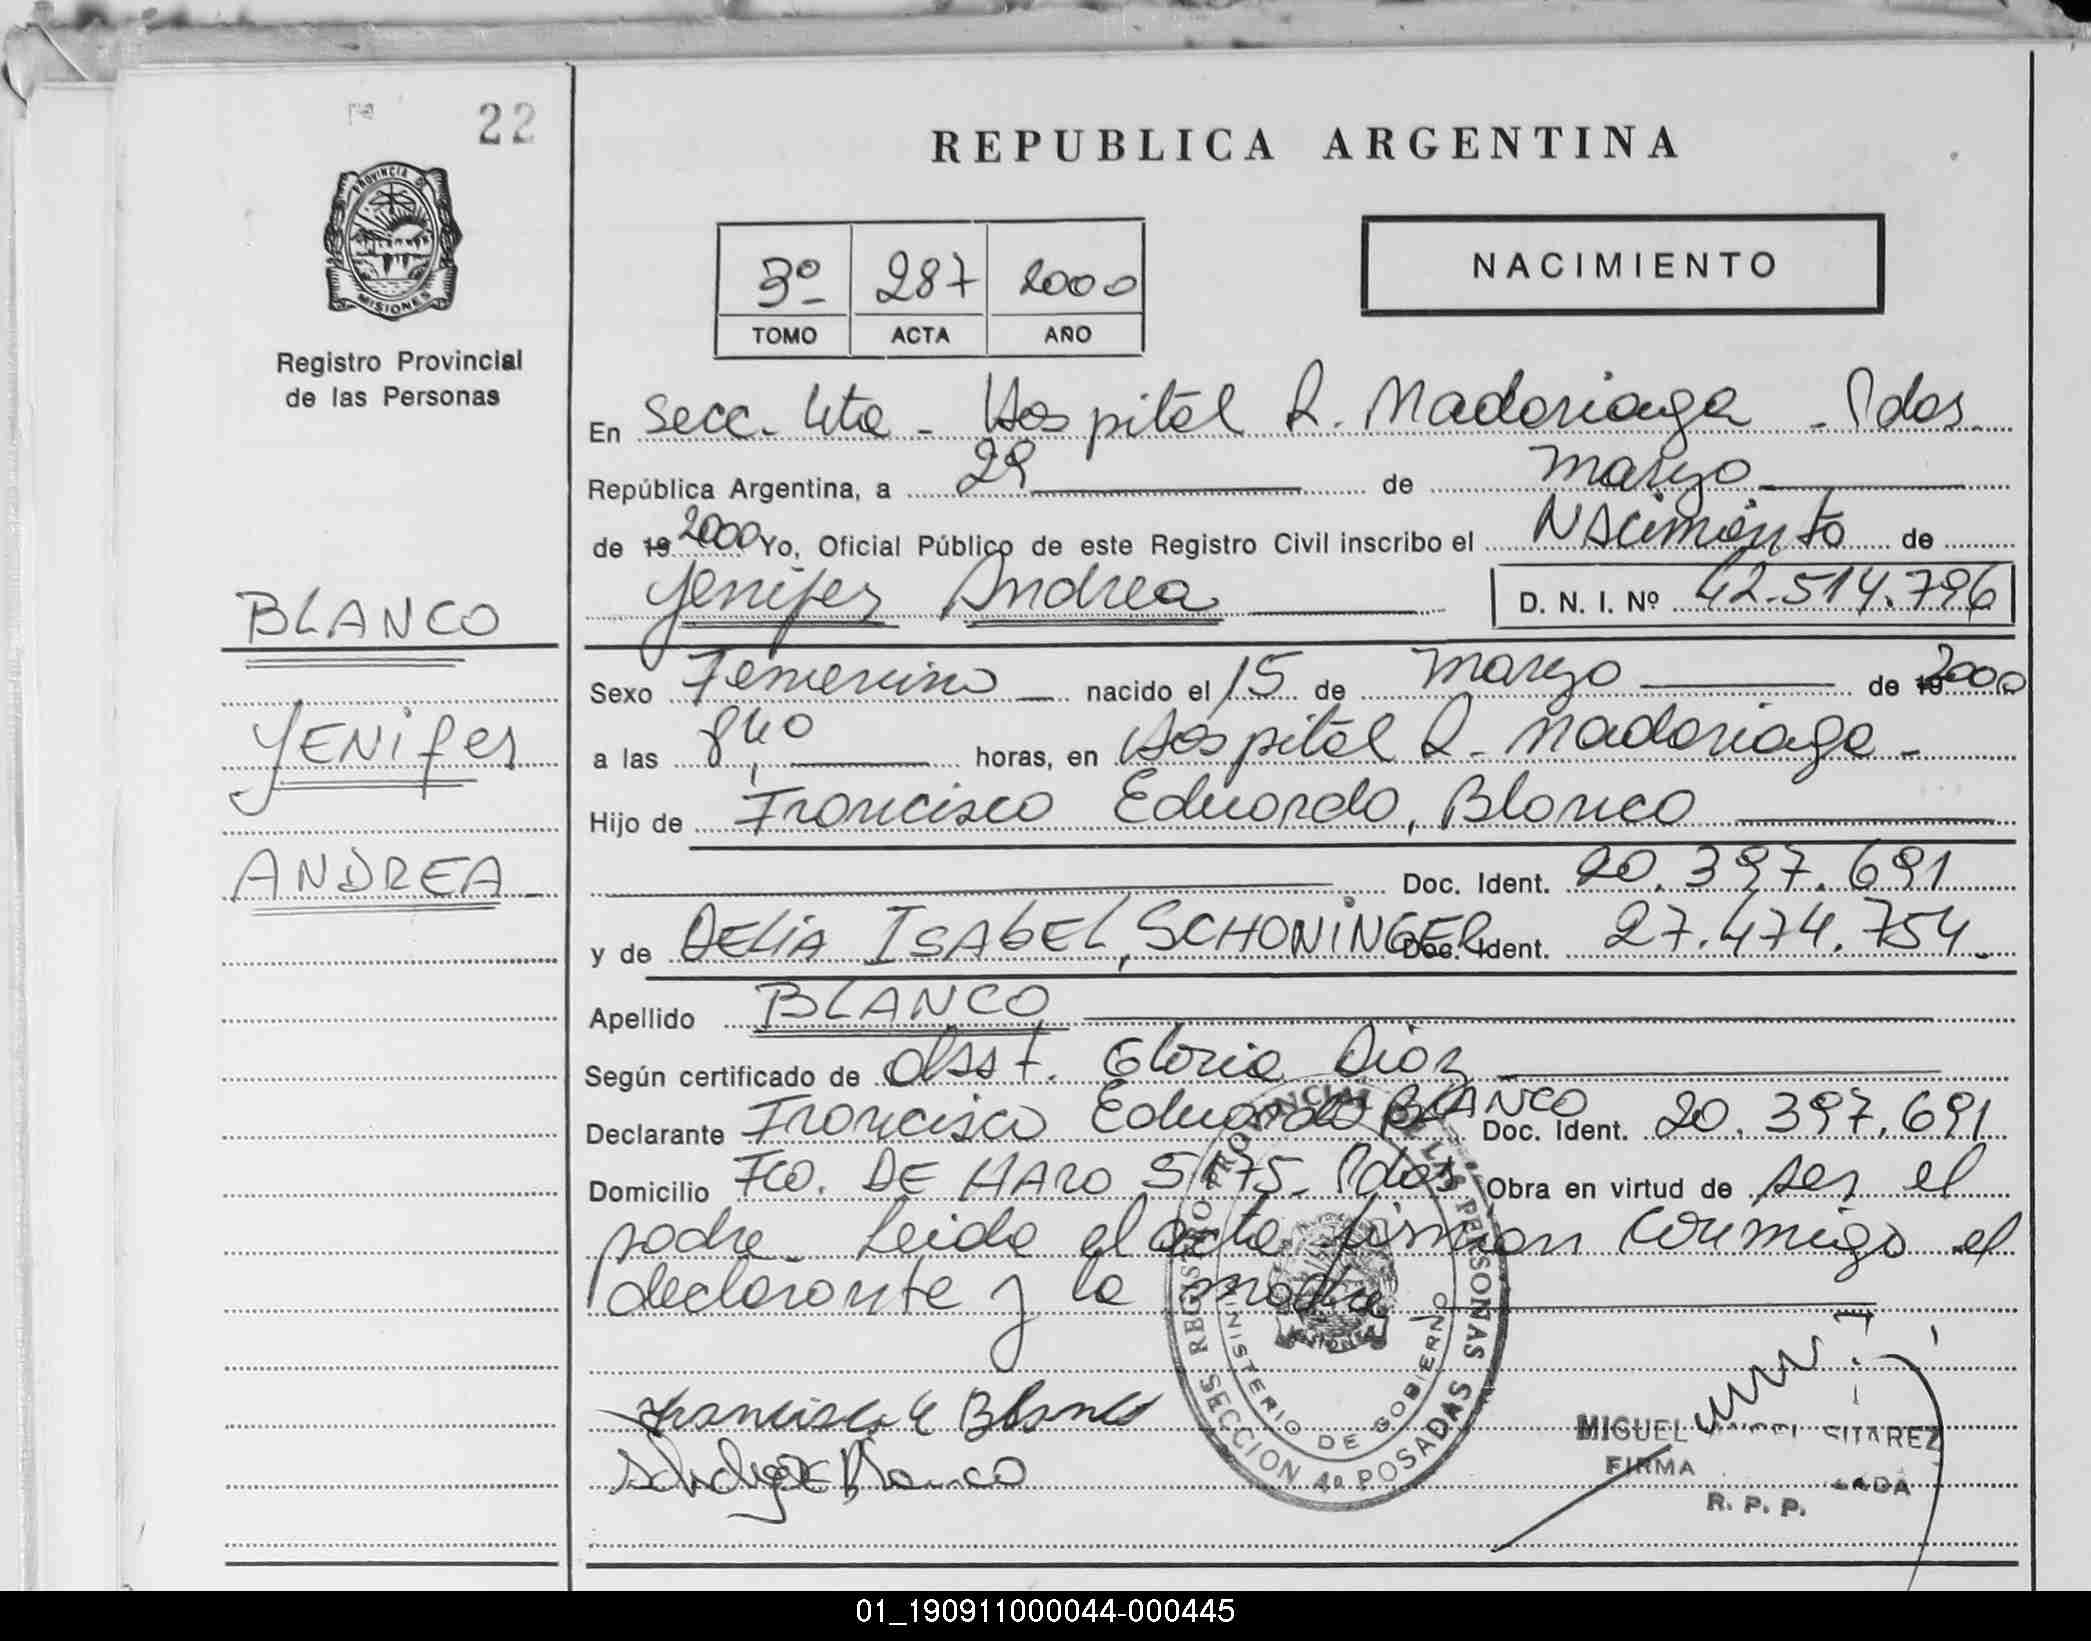 22
PROVINCIA DE
MISIONES
Registro Provincial
de las Personas
BLANCO
YENifer
ANDREA
REPUBLICA ARGENTINA
3º 287 2000
TOMO ACTA AÑO
NACIMIENTO
En Secc. 4ta - Hospital R. Madariaga - Pdas.
República Argentina, a 29 de marzo
de 19 2000 Yo, Oficial Público de este Registro Civil inscribo el Nacimiento de
Yenifer Andrea D. N. I. Nº 42.514.796
Sexo Femenino nacido el 15 de marzo de 19 2000
a las 8,40 horas, en Hospital R. Madariaga -
Hijo de Francisco Eduardo, Blanco
Doc. Ident. 20.397.691
y de DELIA ISABEL, SCHONINGER Doc. Ident. 27.474.754.
Apellido BLANCO
Según certificado de Obst. Gloria Diaz
Declarante Francisco Eduardo BLANCO Doc. Ident. 20.397.691
Domicilio Fco. DE HARO 5175 - Pdas Obra en virtud de ser el
padre - Leida el acta firman conmigo el
declarante y la madre
REGISTRO PROVINCIAL DE LAS PERSONAS
MINISTERIO DE GOBIERNO
MISIONES
SECCION 4a POSADAS
Francisco E Blanco
Blanco
MIGUEL ANGEL SUAREZ
FIRMA
R. P. P.
01_190911000044-000445